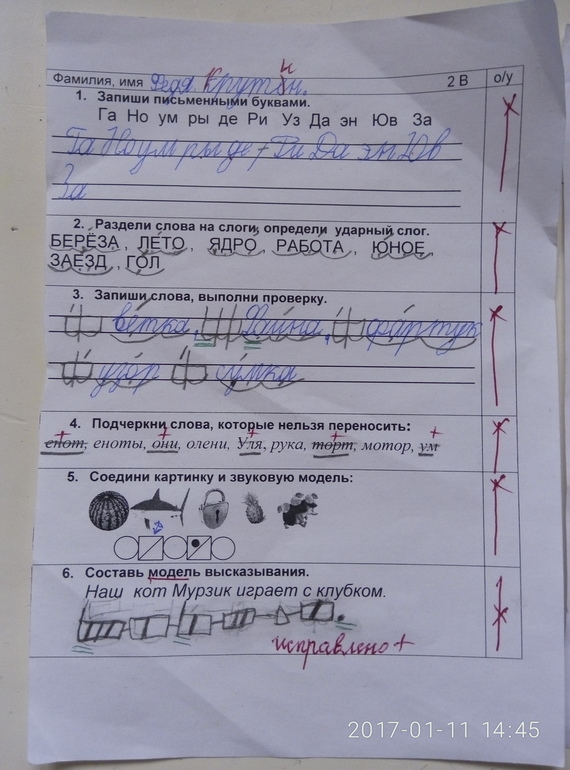 Фамилия, имя Федя Крутин. 2 В о/у
1. Запиши письменными буквами.
Га Но ум ры де Ри Уз Да эн Юв За
Га Но ум ры де Ри Да эн Юв
За
2. Раздели слова на слоги, определи ударный слог.
БЕРЁЗА, ЛЕТО, ЯДРО, РАБОТА, ЮНОЕ,
ЗАЕЗД, ГОЛ
3. Запиши слова, выполни проверку.
ветка, фартук
узор
4. Подчеркни слова, которые нельзя переносить:
енот, еноты, они, олени, Уля, рука, торт, мотор, ум
5. Соедини картинку и звуковую модель:
6. Составь модель высказывания.
Наш кот Мурзик играет с клубком.
исправлено +
2017-01-11 14:45